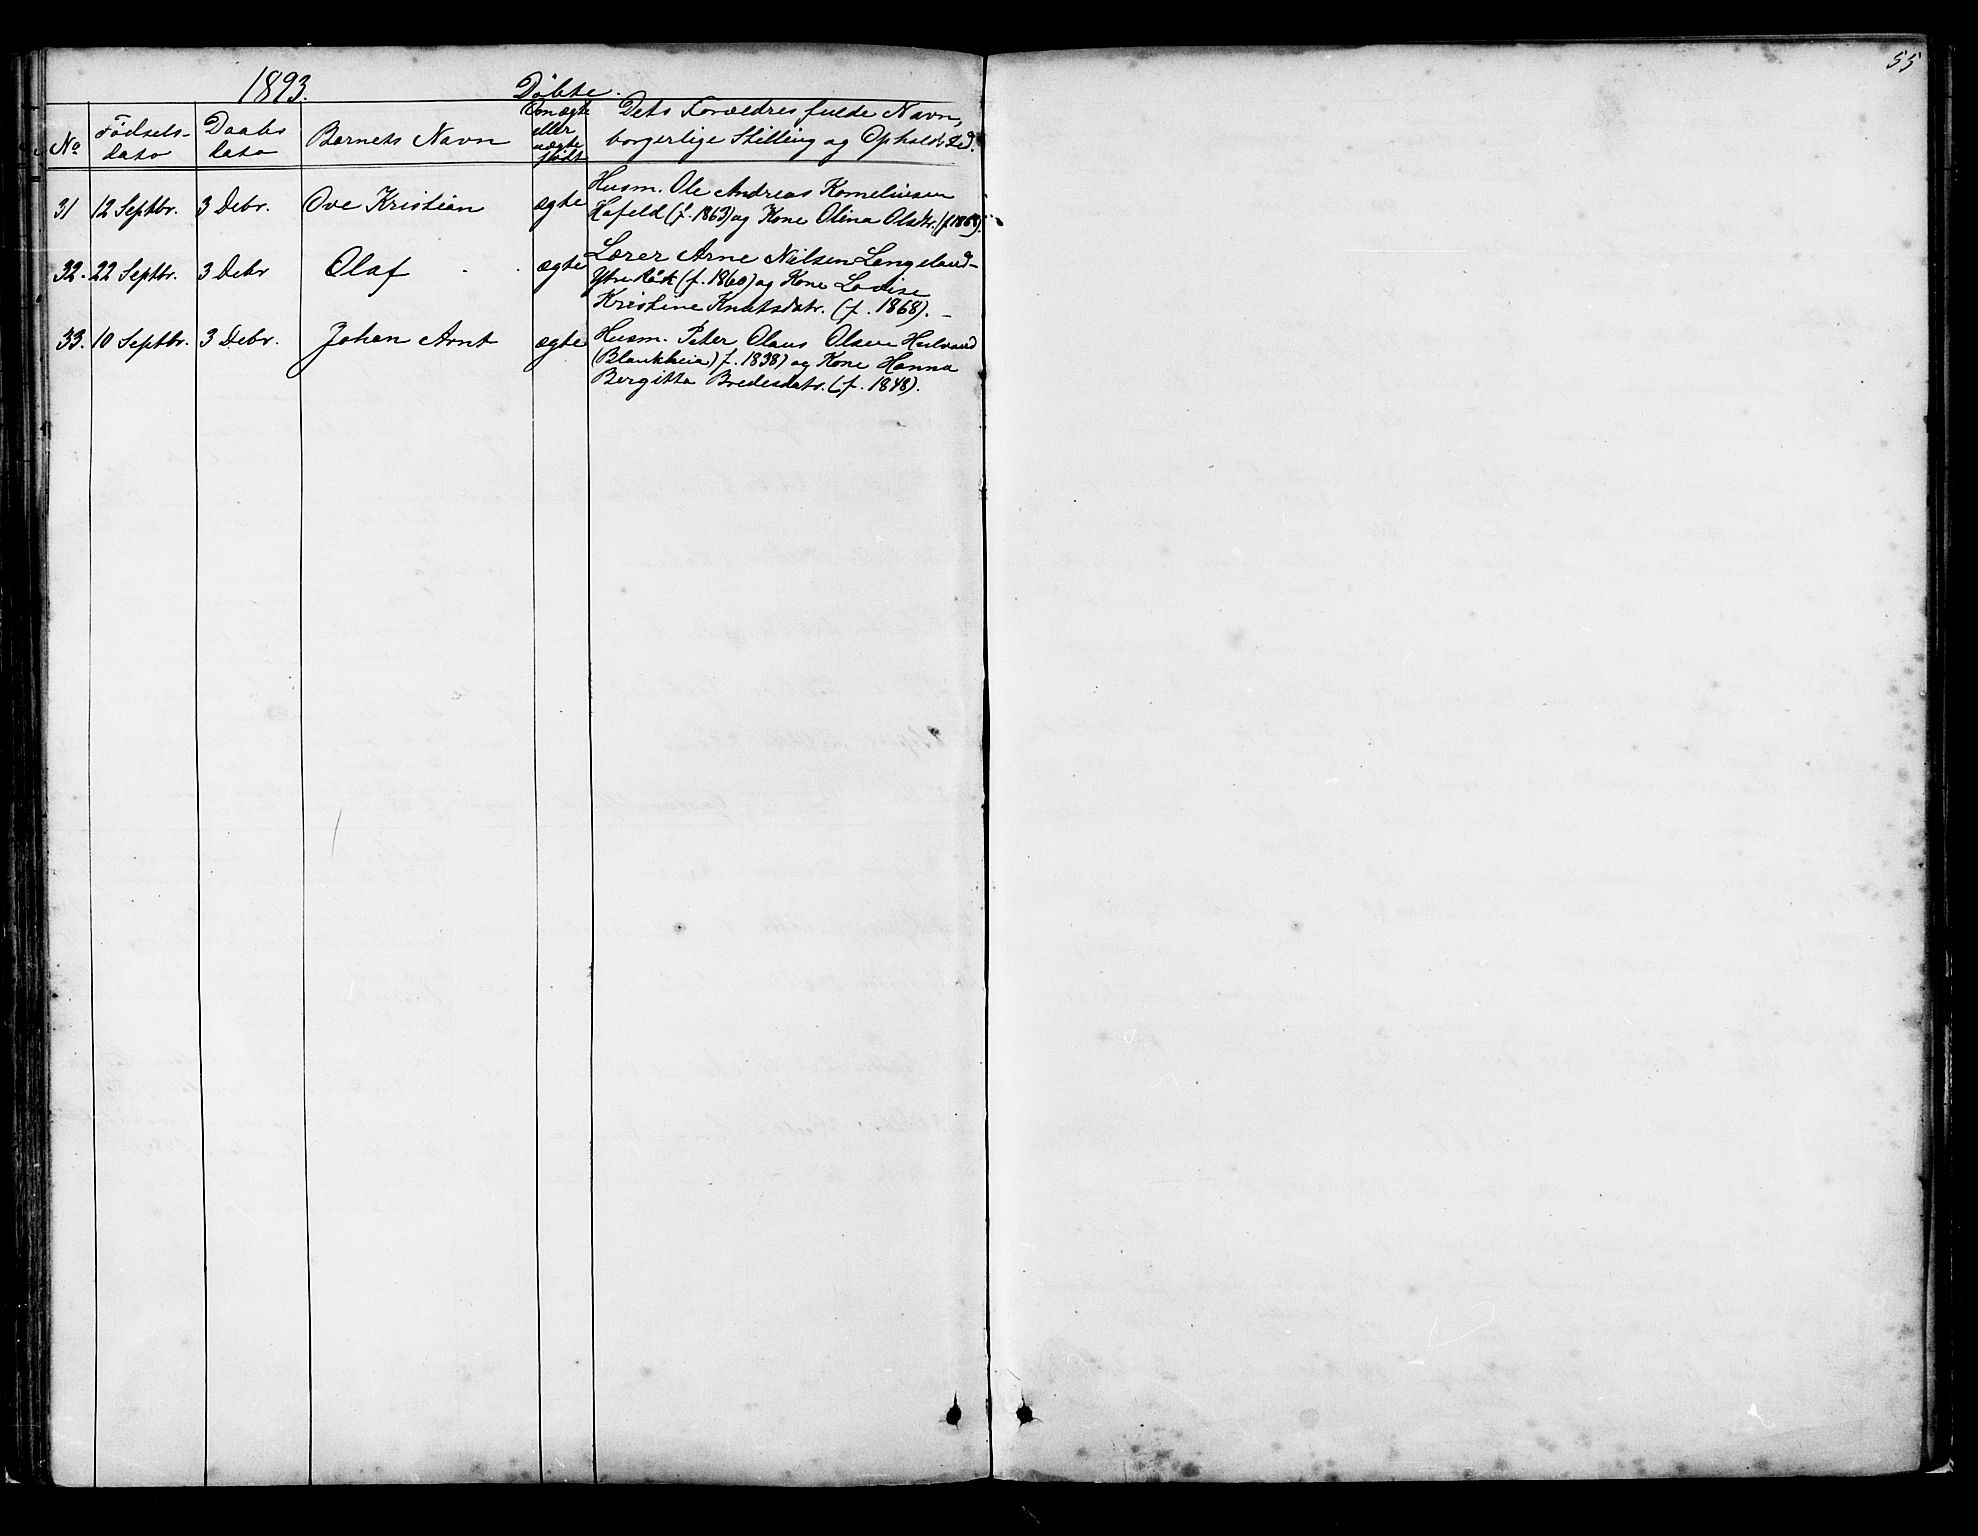 55
1893. Döbte.
No
Födsels-
dato
Daabs
dato
Barnets Navn
Om ægte
eller
uægte
födt
Dets Forældres fulde Navn,
borgerlige Stilling og Opholdssted.
31 12 Septbr. 3 Debr. Ove Kristian ægte
Husm. Ole Andreas Korneliusen
Hafeld (f. 1863) og Kone Olina Olsdtr. (f. 1868).
32. 22 Septbr. 3 Debr Olaf ægte
Lærer Arne Nilsen Langeland-
Ytre (f. 1860) og Kone Lovise
Kristine Knutsdatr. (f. 1868).
33. 10 Septbr. 3 Debr. Johan Arnt ægte
Husm. Peter Olaus Olsen
(Blankheia) f. 1838) og Kone Hanna
Bergitta Bredesdatr. (f. 1848).